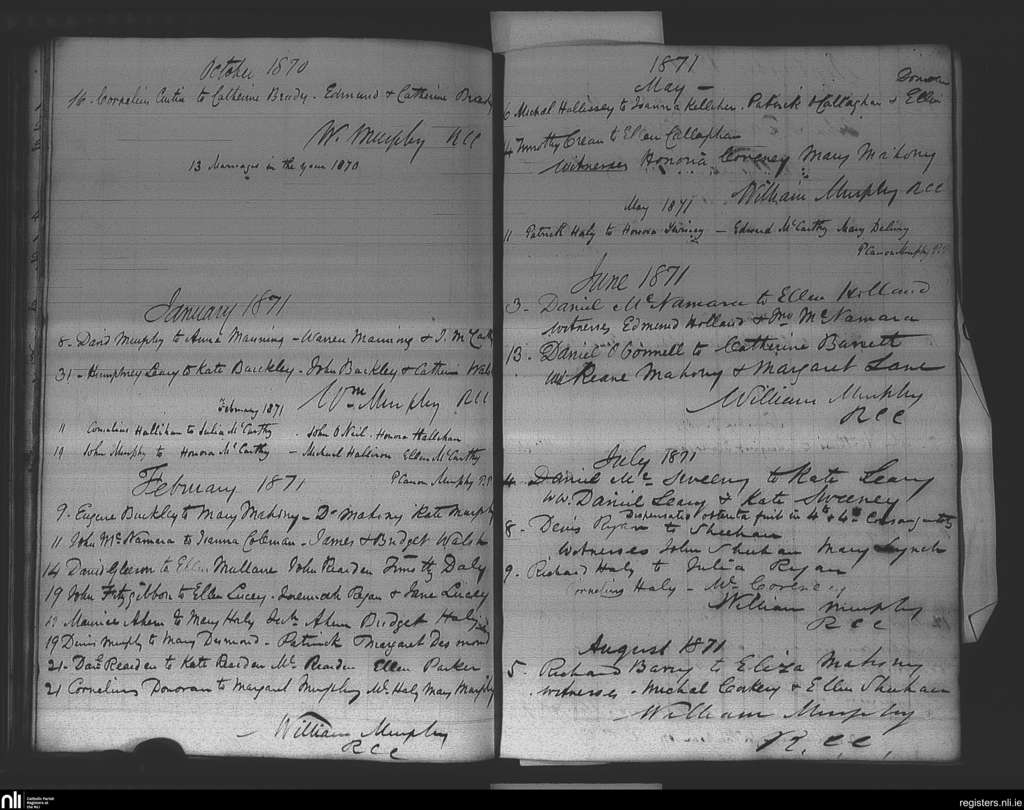 October 1870
16 - Cornelius Curtin to Catherine Brady - Edmund & Catherine Brady
W. Murphy RCC
13 Marriages in the year 1870
January 1871
8 - David Murphy to Anna Manning - Warren Manning & J. McCarthy
31 - Humphrey Leary to Kate Buckley - John Buckley & Catherine Walsh
Wm Murphy RCC
February 1871
11 Cornelius Hallihan to Julia McCarthy - John O Neil - Honora Hallihan
19 John Murphy to Honora McCarthy - Michael Ellen McCarthy
P Canon Murphy P.P.
February 1871
9 - Eugene Buckley to Mary Mahony - Ds Mahony Kate Murphy
11 John McNamara to Joanna Coleman - James & Bridget Walsh
14 David Gleeson to Ellen Mullane John Rearden Timothy Daly
19 John Fitzgibbon to Ellen Lucey - Jeremiah Ryan & Jane Lucey
Maurice Ahern to Mary Haly Ahern Bridget Haly
19 Denis Murphy to Mary Dumond - Patrick Margaret Desmond
21 - Danl Rearden to Kate Rearden Ml Rearden Ellen Parker
21 Cornelius Donovan to Margaret Murphy Ml Haly Mary Murphy
William Murphy
RCC
1871
May -
Donovan
6 Michal Hallissey to Joanna Kelleher - Patrick O Callaghan & Ellen
4 Timothy Crean to Ellen Callaghan
Witnesses Honoria Coveney Mary Mahony
William Murphy RCC
May 1871
11 Patrick Haly to Honora - Edward McCarthy Mary
P Canon Murphy P.P.
June 1871
3 - Daniel McNamara to Ellen Holland
Witnesses Edmund Holland & Jno McNamara
13 - Daniel O Connell to Catherine Barrett
Keane Mahony & Margaret Lane
William Murphy
RCC
July 1871
4 - Daniel Mc Sweeny to Kate Leary
WW. Daniel Leary & Kate Sweeney
Dispensatio obtenta fuit in 4to & 4to Consanguinitatis
8 - Denis Ryan to Sheehan
Witnesses John Sheehan Mary Lynch
9 - Richard Haly to Julia Ryan
ornelius Haly - Ml
William Murphy
RCC
August 1871
5 - Richard Barry to Eliza Mahony
Witnesses - Michal Corkery & Ellen Sheehan
William Murphy
R.CC.
nli Catholic Parish Registers at the NLI
registers.nli.ie